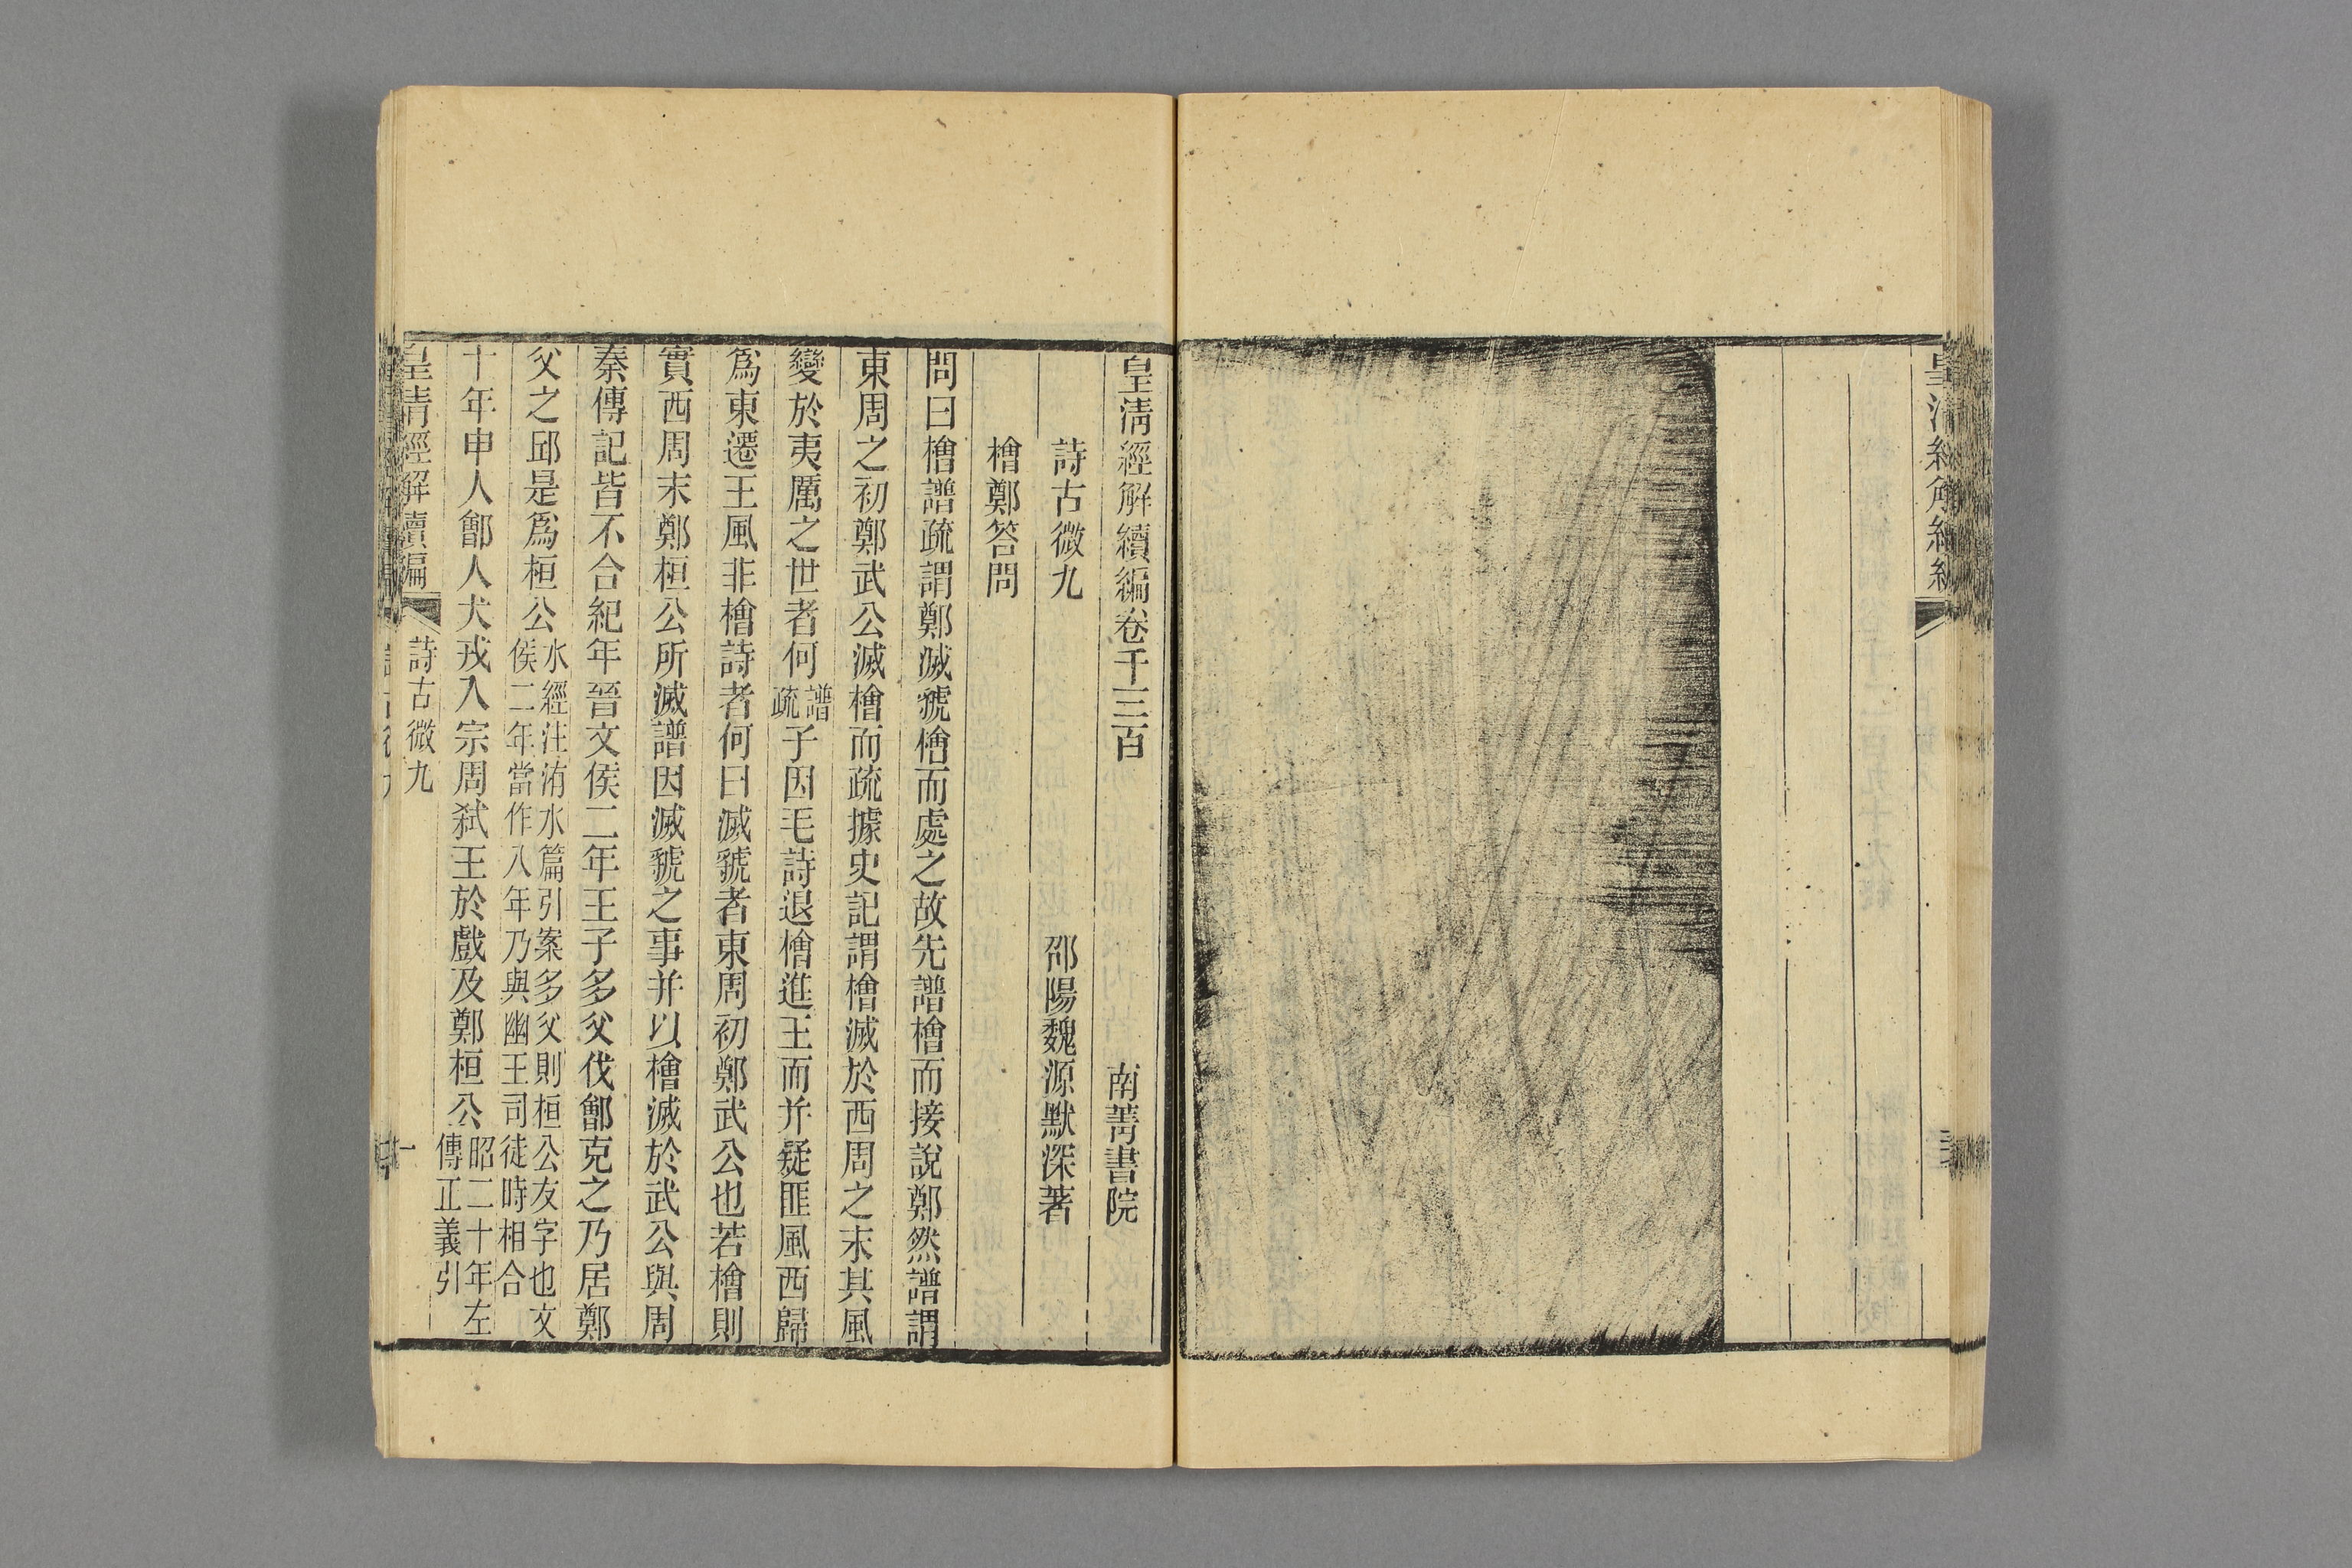 皇清經解續編
皇清經解續編卷千三百　南菁書院
詩古微九　邵陽魏源默深著
檜鄭答問
問曰檜譜疏謂鄭滅虢檜而處之故先譜檜而接說鄭然譜謂
東周之初鄭武公滅檜而疏據史記謂檜滅於西周之末其風
變於夷厲之世者何譜疏子因毛詩退檜進王而幷疑匪風西歸
爲東遷王風非檜詩者何曰滅虢者東周初鄭武公也若檜則
實西周末鄭桓公所滅譜因滅虢之事并以檜滅於武公與周
秦傳記皆不合紀年晉文侯二年王子多父伐鄶克之乃居鄭
父之邱是爲桓公水經注洧水篇引案多父則桓公友字也文侯二年當作八年乃與幽王司徒時相合
十年申人鄶人犬戎入宗周弑王於戲及鄭桓公昭二十年左傳正義引
皇清經解續編　詩古微九　一